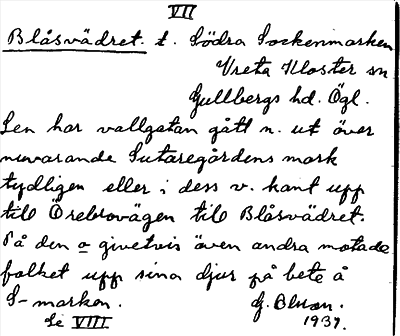 VII
Blåsvädret. t. Södra Sockenmarken
Vreta Kloster sn
Gullbergs hd. Ögl.
Sen har vallgatan gått n. ut över
nuvarande Sutaregårdens mark
tydligen eller i dess v. kant upp
till Örebrovägen till Blåsvädret.
På den o givetvis även andra motade
folket upp sina djur på bete å
S-marken. G.
Se VIII 1939.